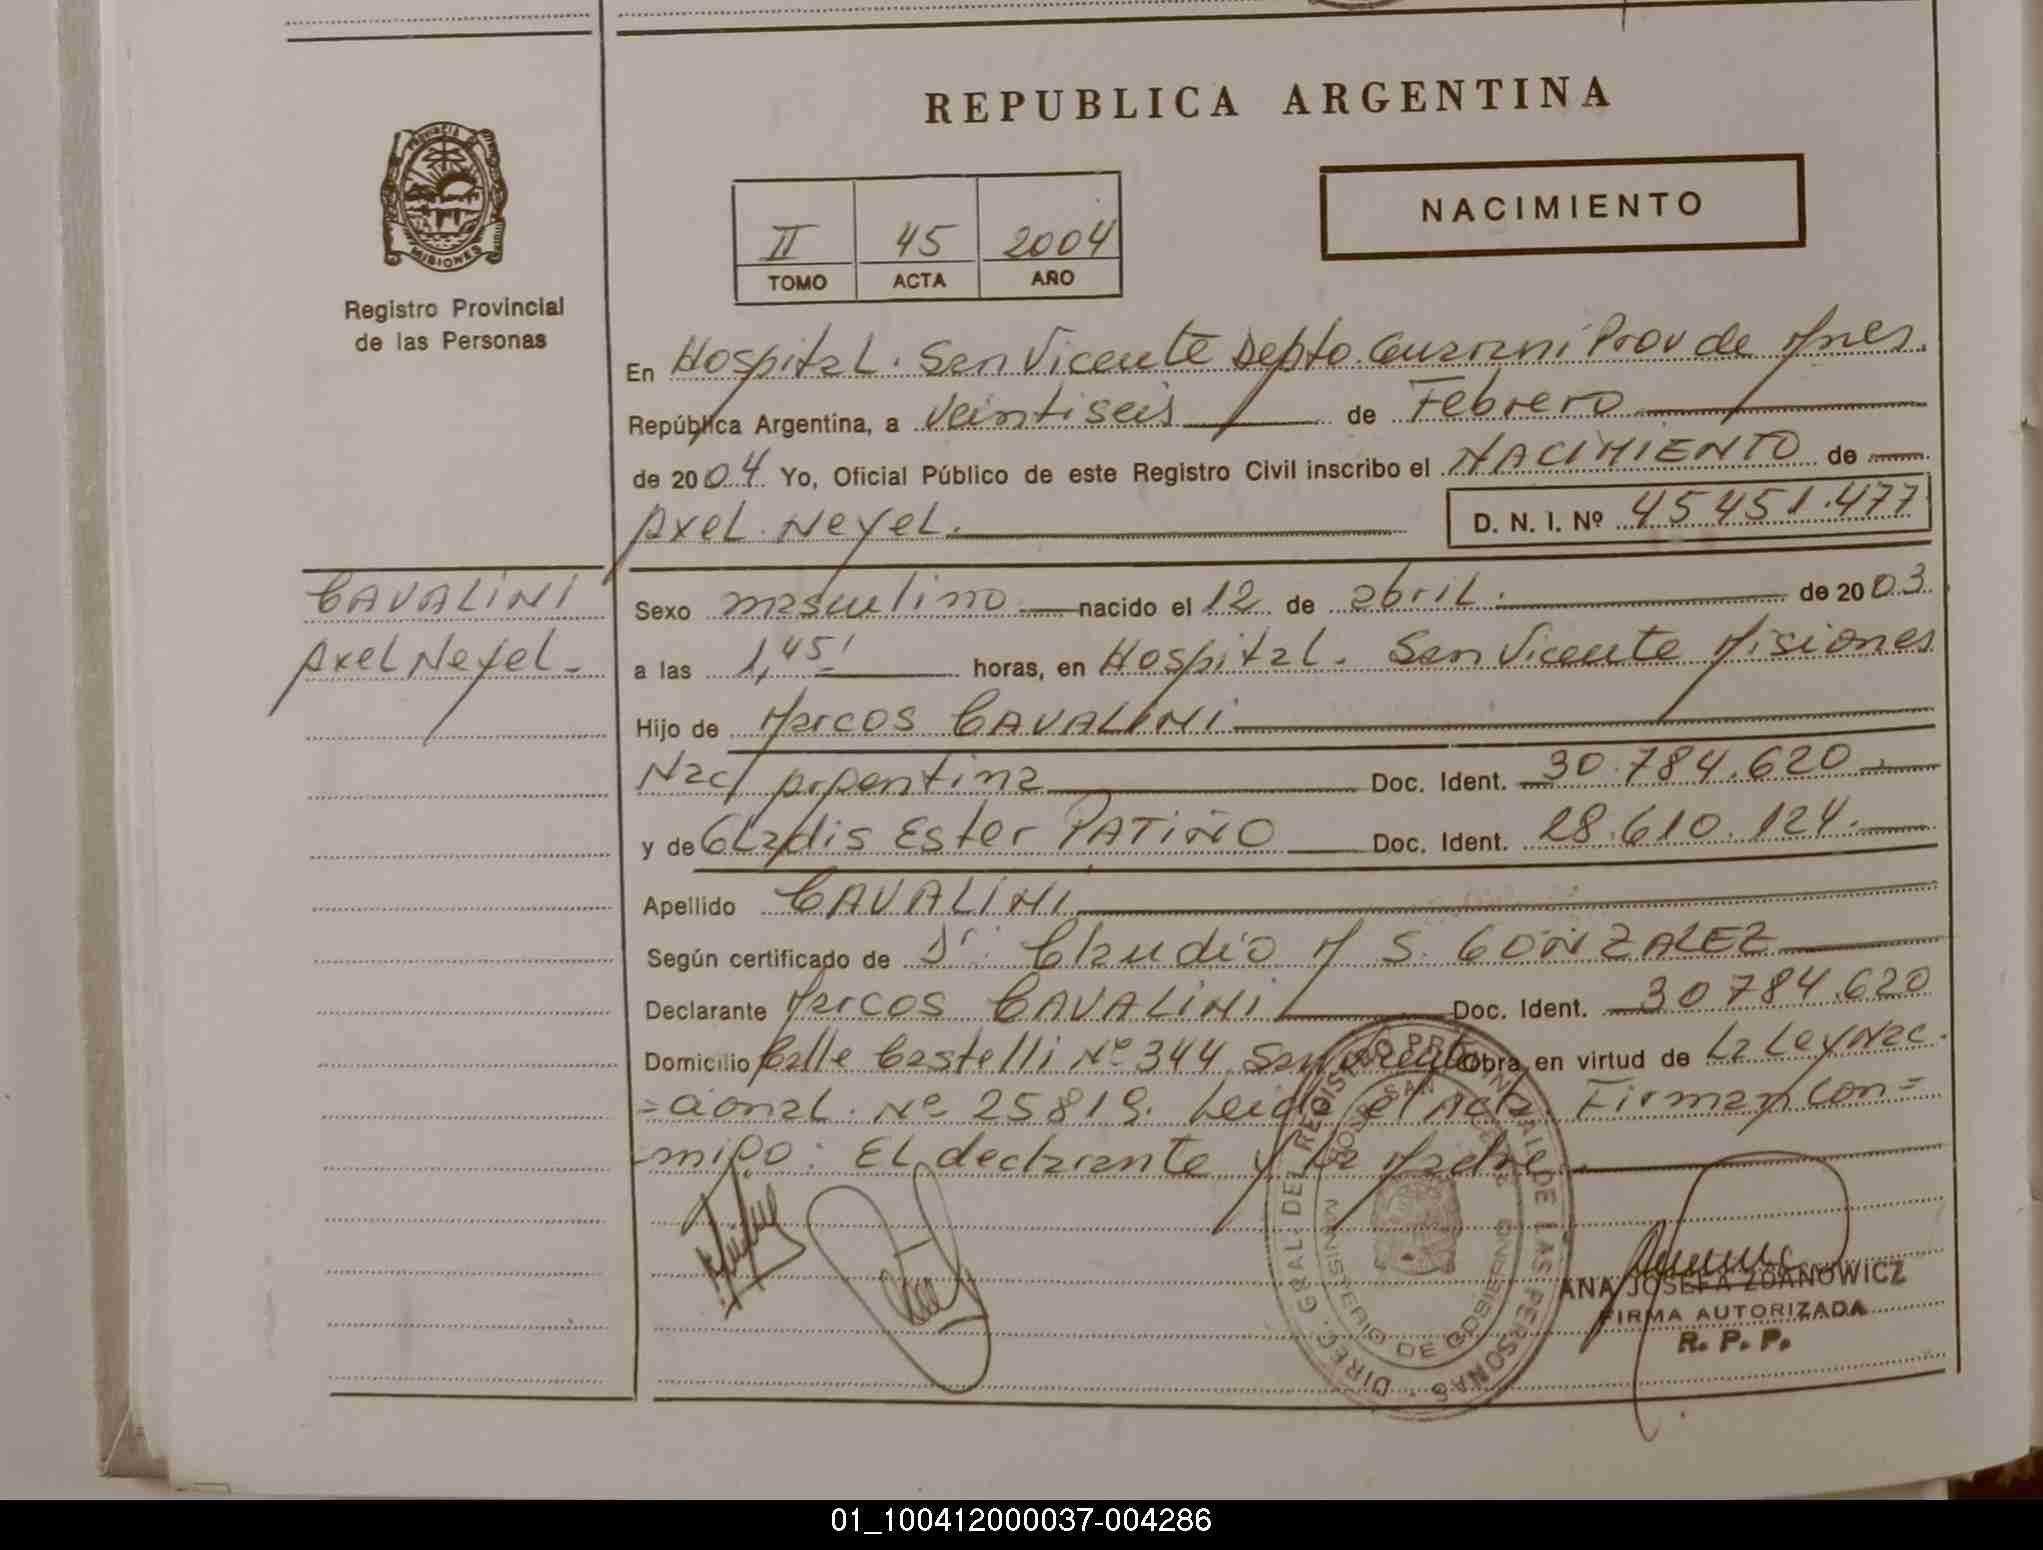 REPUBLICA ARGENTINA
PROVINCIA DE
MISIONES
Registro Provincial
de las Personas
II 45 2004
TOMO ACTA AÑO
NACIMIENTO
En Hospital. San Vicente Depto. Guarani Prov de Mnes.
República Argentina, a veintiseis de Febrero
de 2004 Yo, Oficial Público de este Registro Civil inscribo el NACIMIENTO de
Axel Neyel. D. N. I. Nº 45 451.477
CAVALINI
Axel Neyel.
Sexo masculino nacido el 12 de abril. de 2003.
a las 1,45' horas, en Hospital. San Vicente Misiones
Hijo de Marcos CAVALINI
Nac/ Argentina Doc. Ident. 30.784.620
y de Gladis Ester PATIÑO Doc. Ident. 28.610.124.
Apellido CAVALINI
Según certificado de Dr. Claudio M S. GONZALEZ
Declarante Marcos CAVALINI Doc. Ident. 30 784.620
Domicilio Calle Castelli Nº 344 San Obra en virtud de La Ley Nac
=cional. Nº 25819. Leida el Acta. Firman con=
=migo: El declarante y la Madre.
DIREC. GRAL. DEL REGISTRO PROVINCIAL DE LAS PERSONAS
MINISTERIO DE GOBIERNO
ANA JOSEFA ZDANOWICZ
FIRMA AUTORIZADA
R. P. P.
01_100412000037-004286